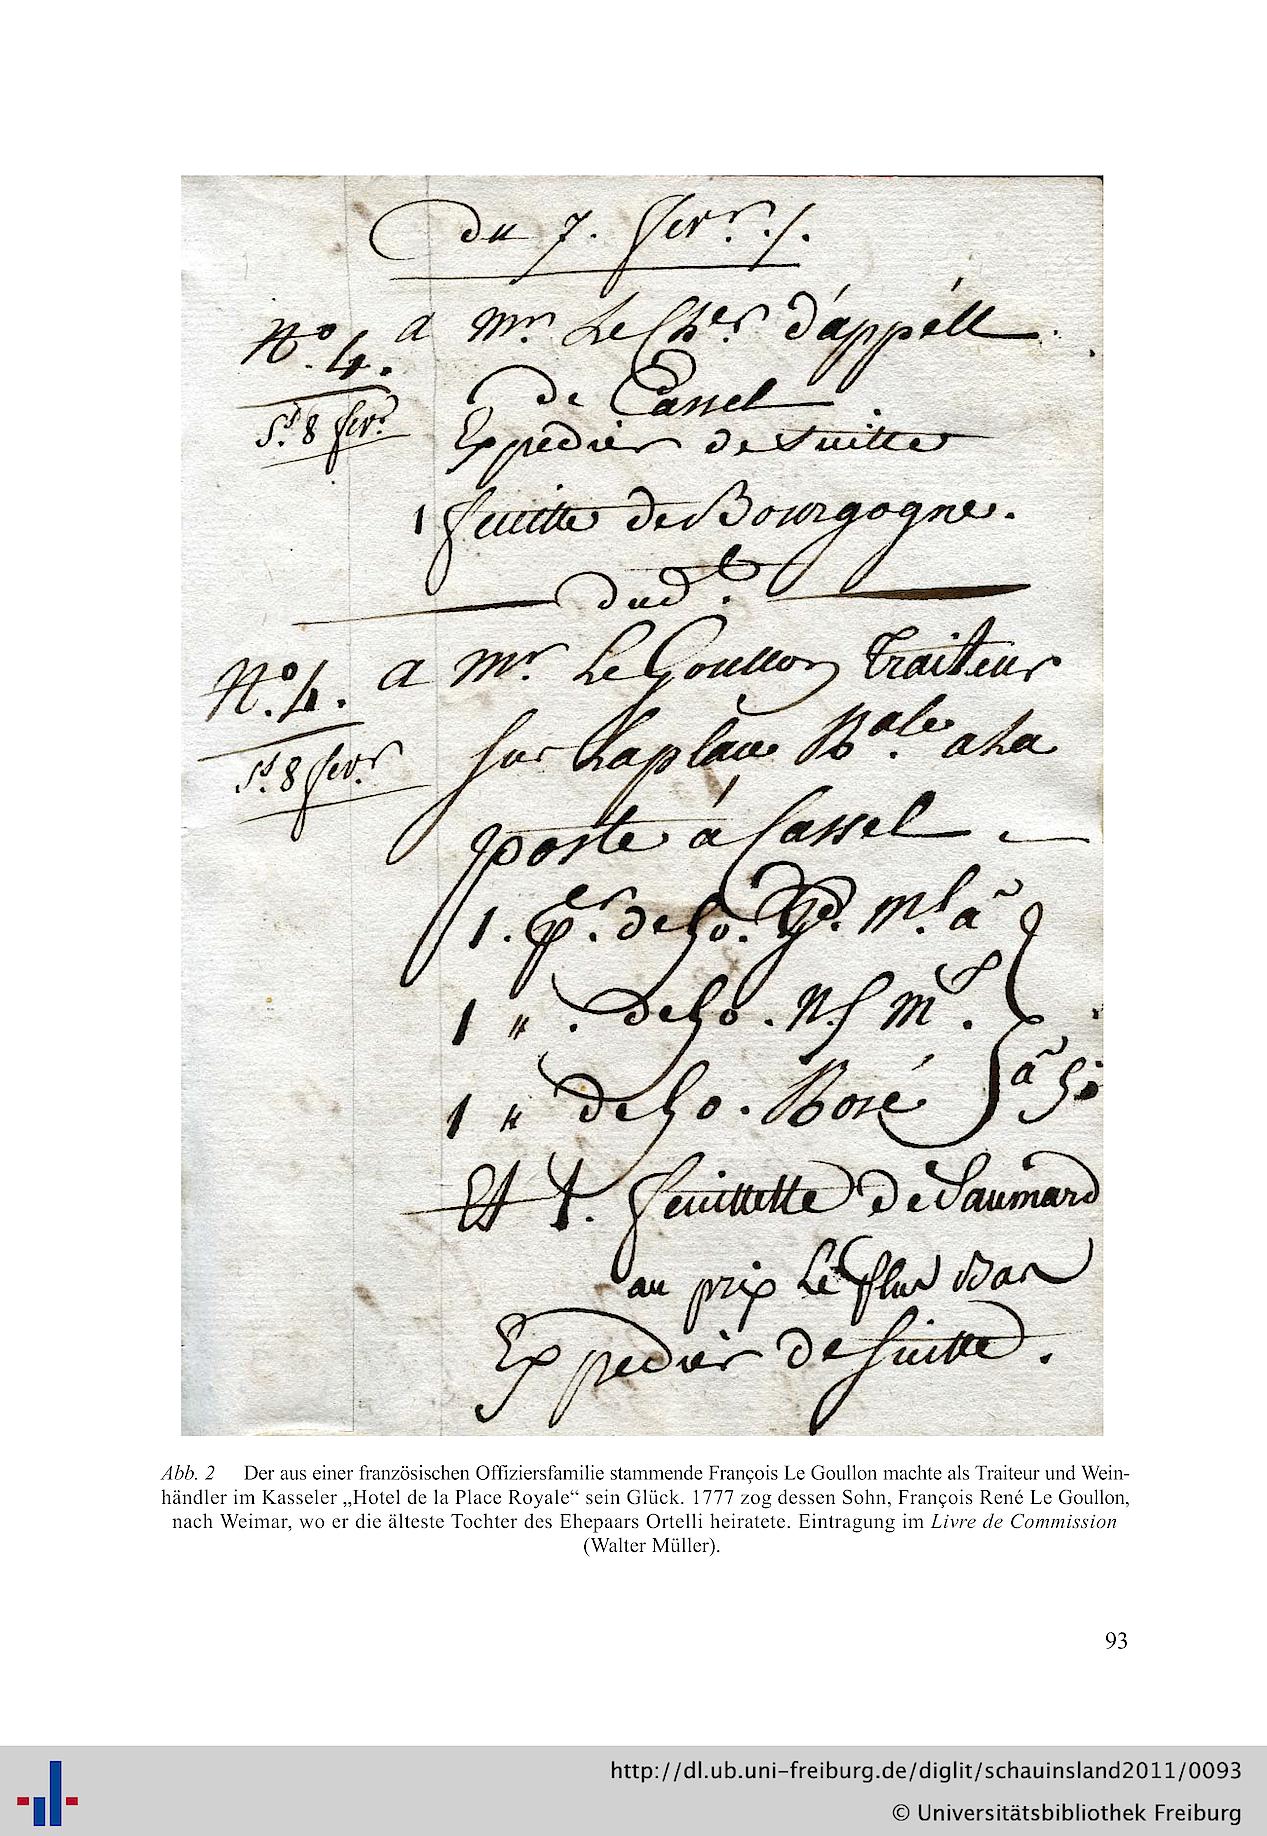 du 7. fevr. /.
No. 4. a Mr. Le Cher d'áppéll
de Cassel
St. 8 fevr.
Expedier de Suitte
1 feuitte de Bourgogne.
dud.
No. 4. a Mr. Le Goullon Traiteur
St. 8 fevr.
sur La place Rale a La
poste á Cassel
1. pr. de 50.
1 " . de 50.
1 " de 50. Rosé à 50
Et 1. feuittette de Saumard
au prix Le plus Bas
Expedier de Suitte.
Abb. 2 Der aus einer französischen Offiziersfamilie stammende François Le Goullon machte als Traiteur und Wein-
händler im Kasseler „Hotel de la Place Royale“ sein Glück. 1777 zog dessen Sohn, François René Le Goullon,
nach Weimar, wo er die älteste Tochter des Ehepaars Ortelli heiratete. Eintragung im Livre de Commission
(Walter Müller).
93
http://dl.ub.uni-freiburg.de/diglit/schauinsland2011/0093
© Universitätsbibliothek Freiburg